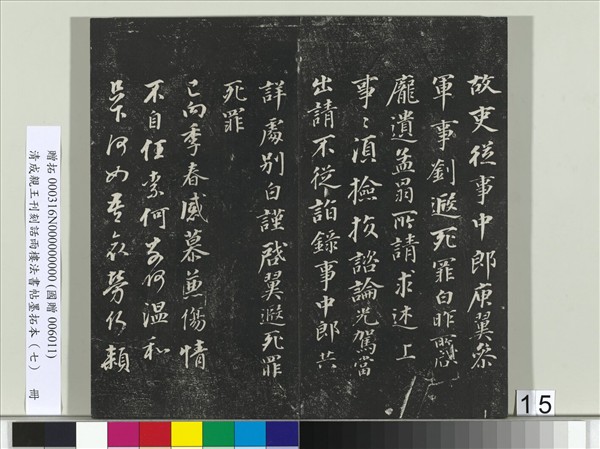 故吏從事中郎庾翼參
軍事劉遐死罪白昨
龐遺孟所請求述上
事〻須檢校諮論光駕當
出請不從詣錄事中郎共
詳處別白謹牋翼遐死罪
死罪
已向季春感慕兼傷情
不自任奈何奈何溫和
足下何如吾哀勞何賴
贈拓000316N000000000(國贈006011)
清成親王刊刻話雨樓法書帖墨拓本（七） 冊
15